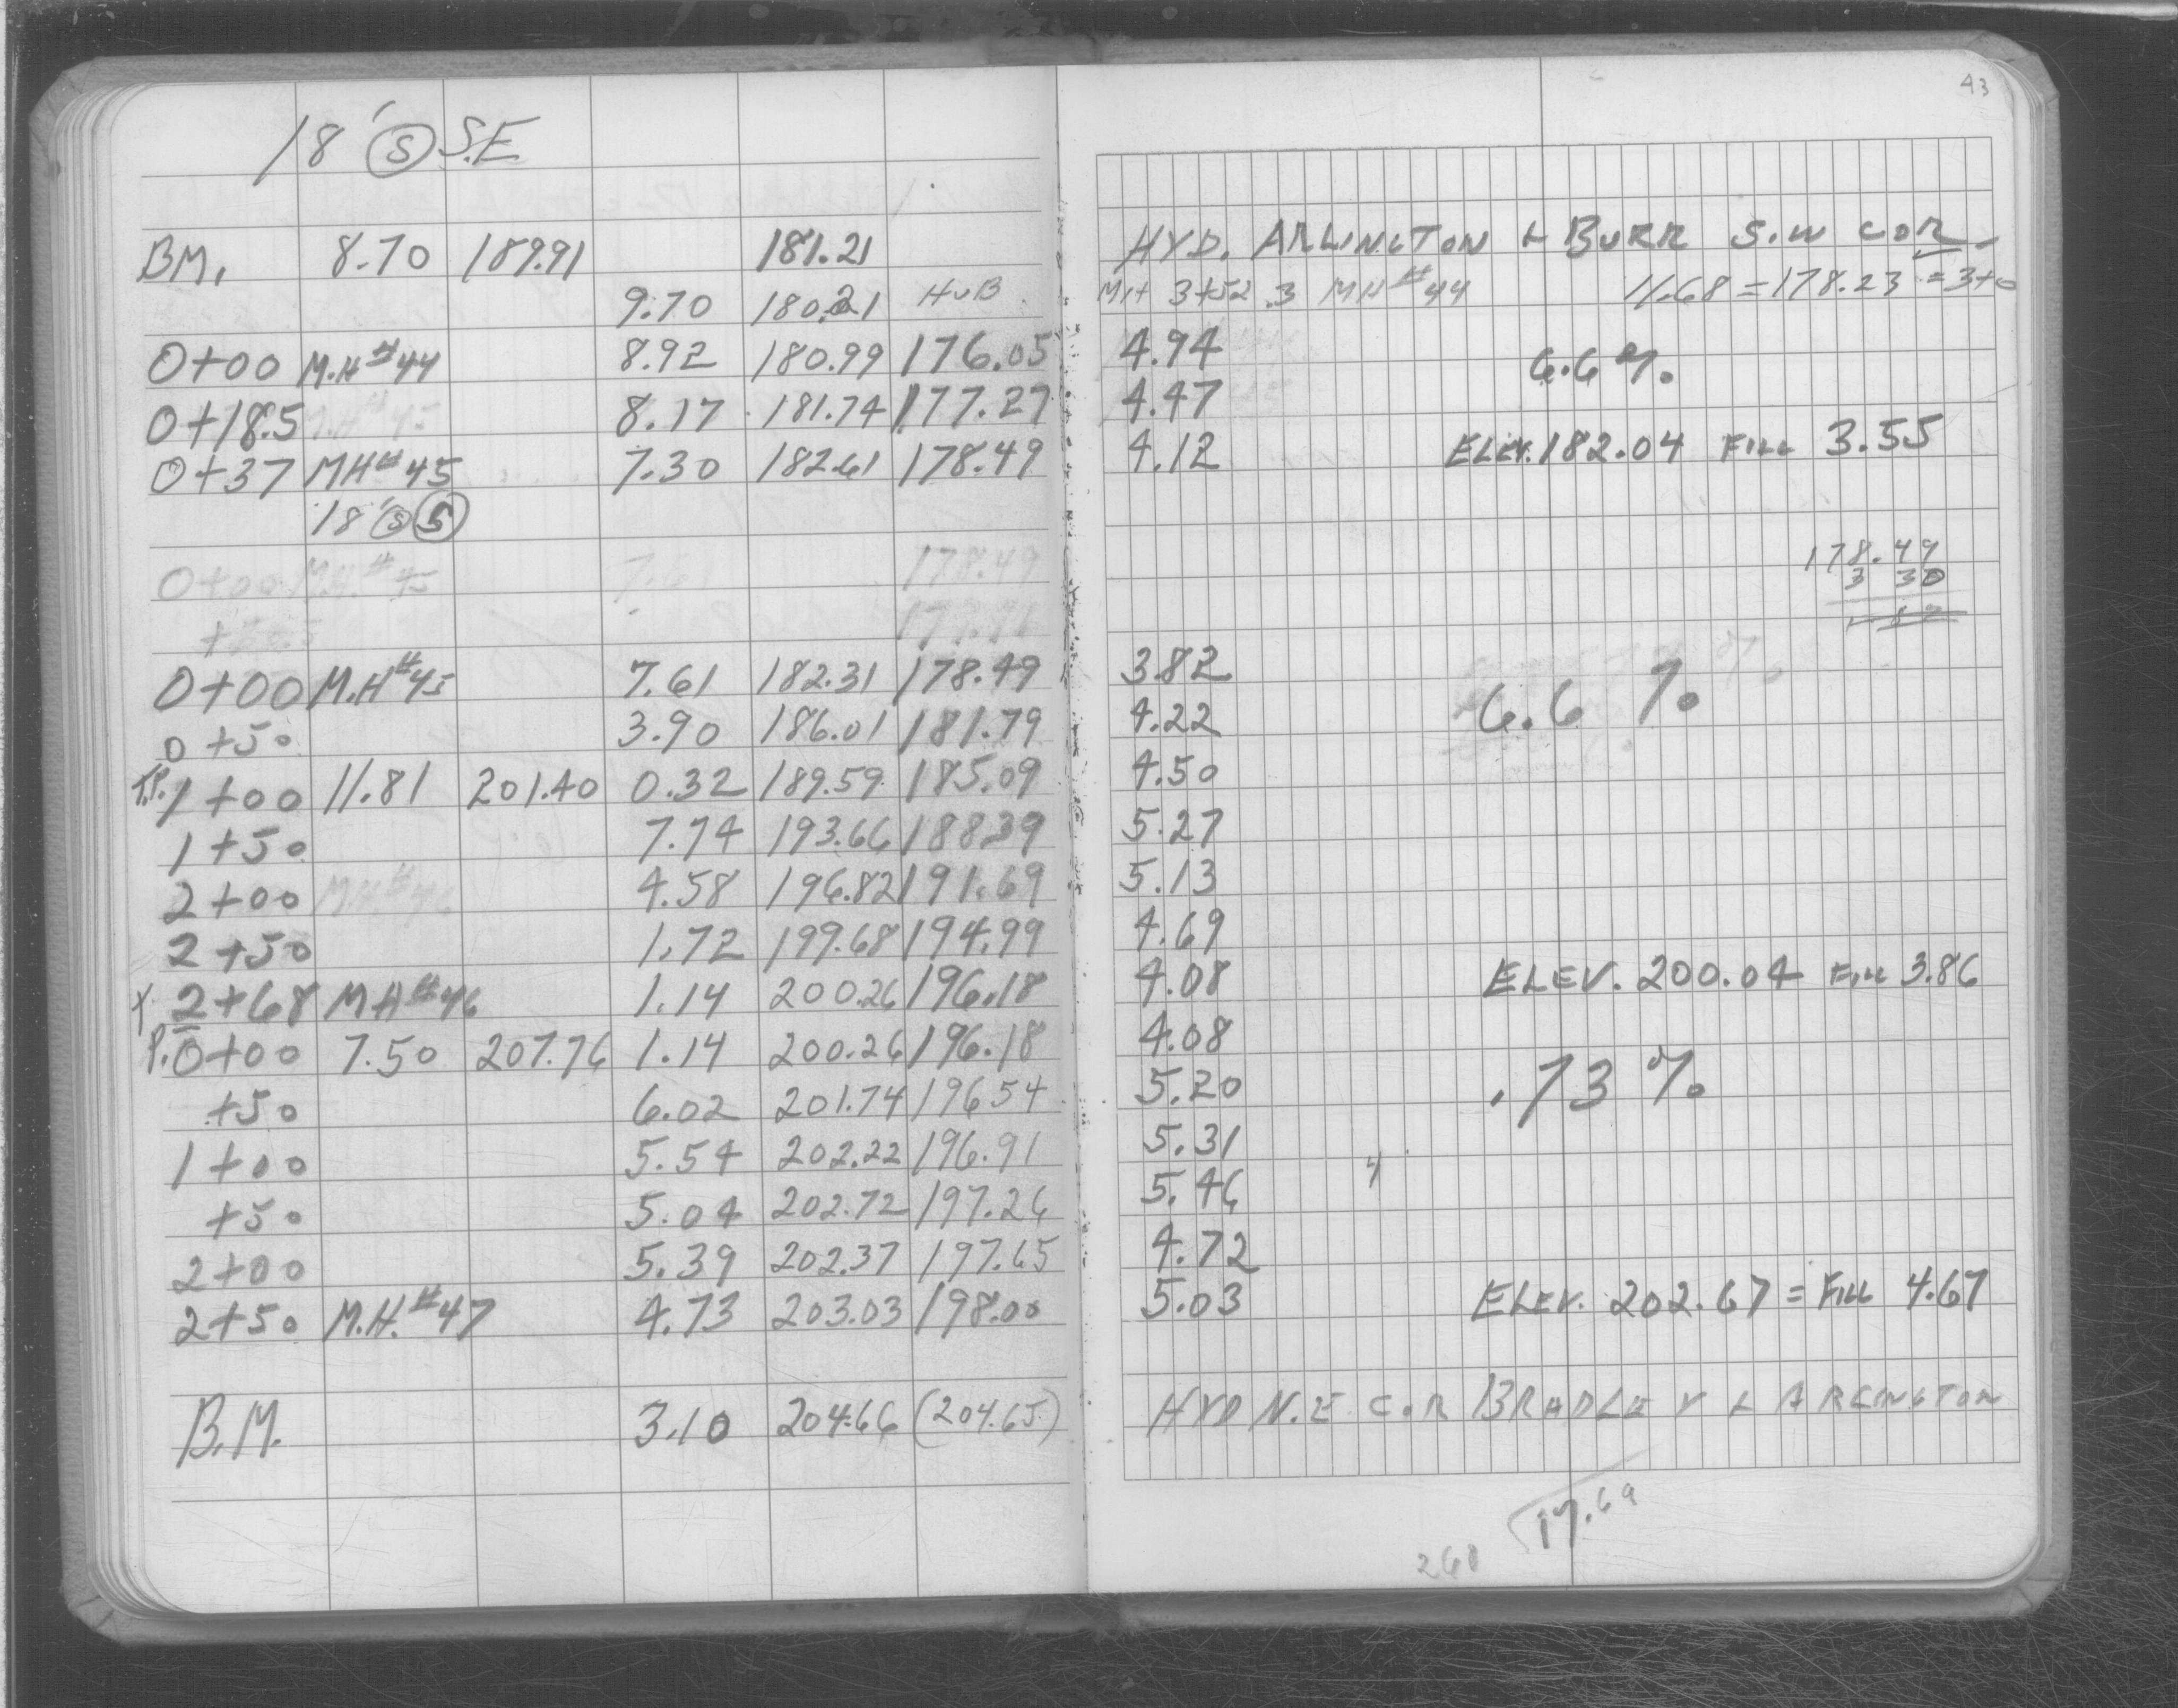 43
18' Ⓢ S.E
BM. 8.70 189.91 181.21 HYD. ARLINGTON & BURR S.W COR
9.70 180.21 HUB MH 3+52.3 MH#44 11.68=178.23=3+0
0+00 M.H#44 8.92 180.99 176.05 4.94 6.6%
0+18.5 8.17 181.74 177.27 4.47
0+37 MH#45 7.30 182.61 178.49 4.12 ELEV. 182.04 FILL 3.55
18' Ⓢ Ⓢ
0+00 M.H.#45 7.61 178.49 178.49
3 30
0+00 M.H#45 7.61 182.31 178.49 3.82 6.6 %
0+50 3.90 186.01 181.79 4.22
T.P. 1+00 11.81 201.40 0.32 189.59 185.09 4.50
1+50 7.74 193.66 188.39 5.27
2+00 M.H.#46 4.58 196.82 191.69 5.13
2+50 1.72 199.68 194.99 4.69
T. 2+68 MH#46 1.14 200.26 196.18 4.08 ELEV. 200.04 FILL 3.86
P. 0+00 7.50 207.76 1.14 200.26 196.18 4.08
+50 6.02 201.74 196.54 5.20 .73%
1+00 5.54 202.22 196.91 5.31
+50 5.04 202.72 197.26 5.46
2+00 5.39 202.37 197.65 4.72
2+50 M.H.#47 4.73 203.03 198.00 5.03 ELEV. 202.67 = FILL 4.67
B.M. 3.10 204.66 (204.65) HYD N.E. COR BRADLEY & ARLINGTON
17.69
268